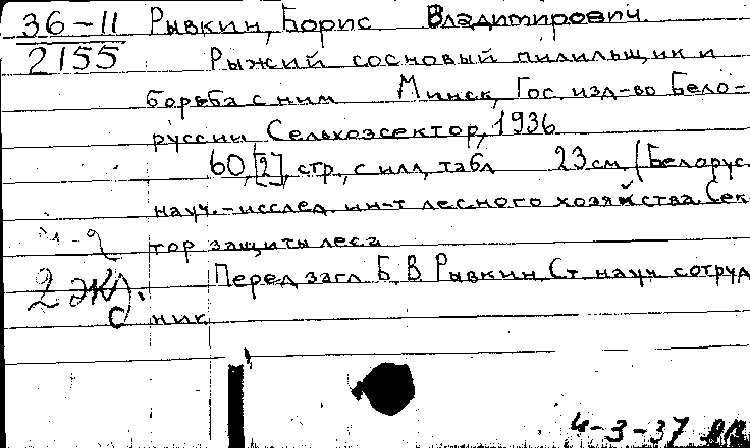 36-11 Рывкин, Борис Владимирович.
2155 Рыжий сосновый пилильщик и
борьба с ним Минск, Гос. изд-во Бело-
руссии, Сельхозсектор, 1936
60, [2], стр., с илл, табл 23 см. (Белорус.
науч.-исслед. ин-т лесного хозяйства. Сек
тор защиты леса
Перед загл. Б. В. Рывкин Ст. науч. сотруд
2 экз.
ник
4-3-37